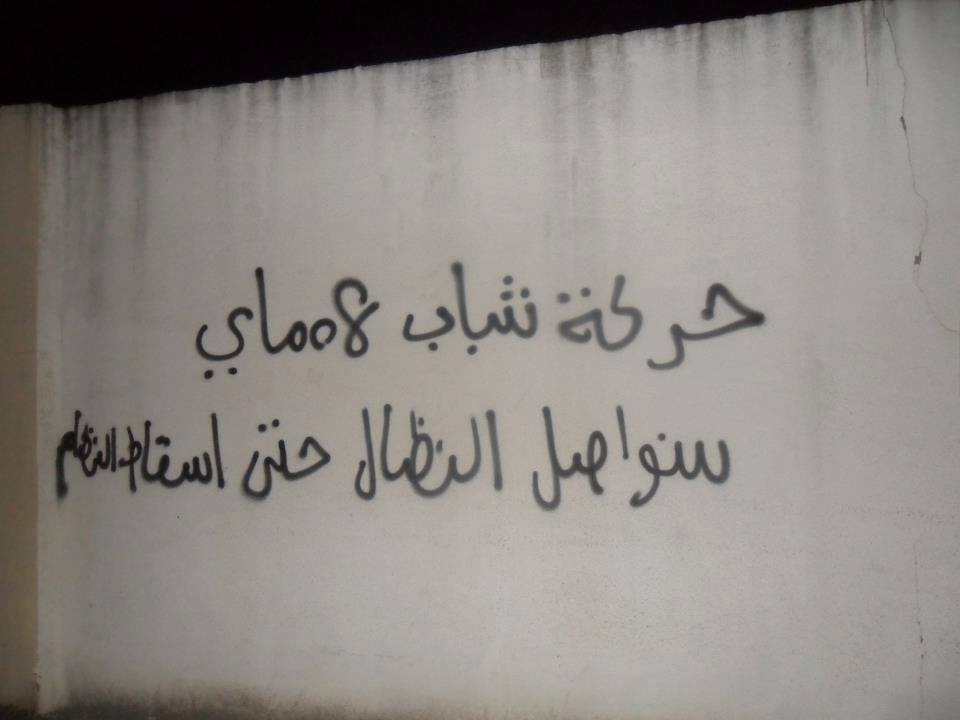 حركة شباب 08 ماي
سنواصل النظال حتى اسقاط النظام